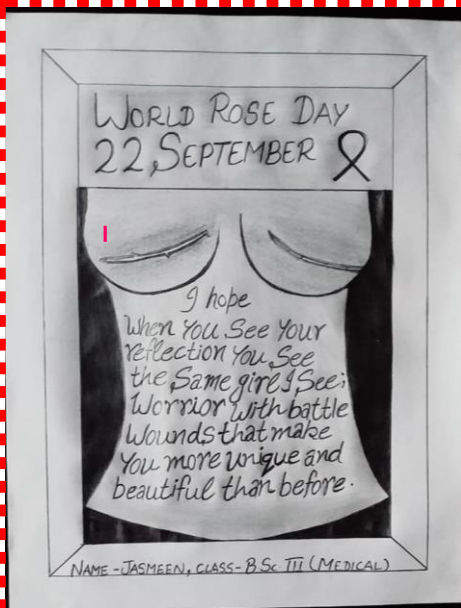 WORLD ROSE DAY
22, SEPTEMBER
I hope
When You See Your
reflection You See
the Same girl I See;
Worrior With battle
Wounds that make
You more unique and
beautiful than before.
NAME - JASMEEN, CLASS - B Sc III (MEDICAL)